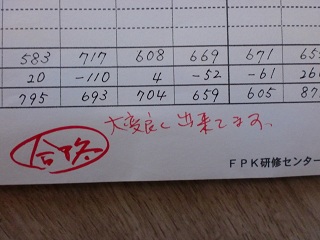 583 717 608 669 671 65
20 -110 4 -52 -61 26
795 693 704 659 605 87
大変良く出来てます。
合格
FPK研修センター